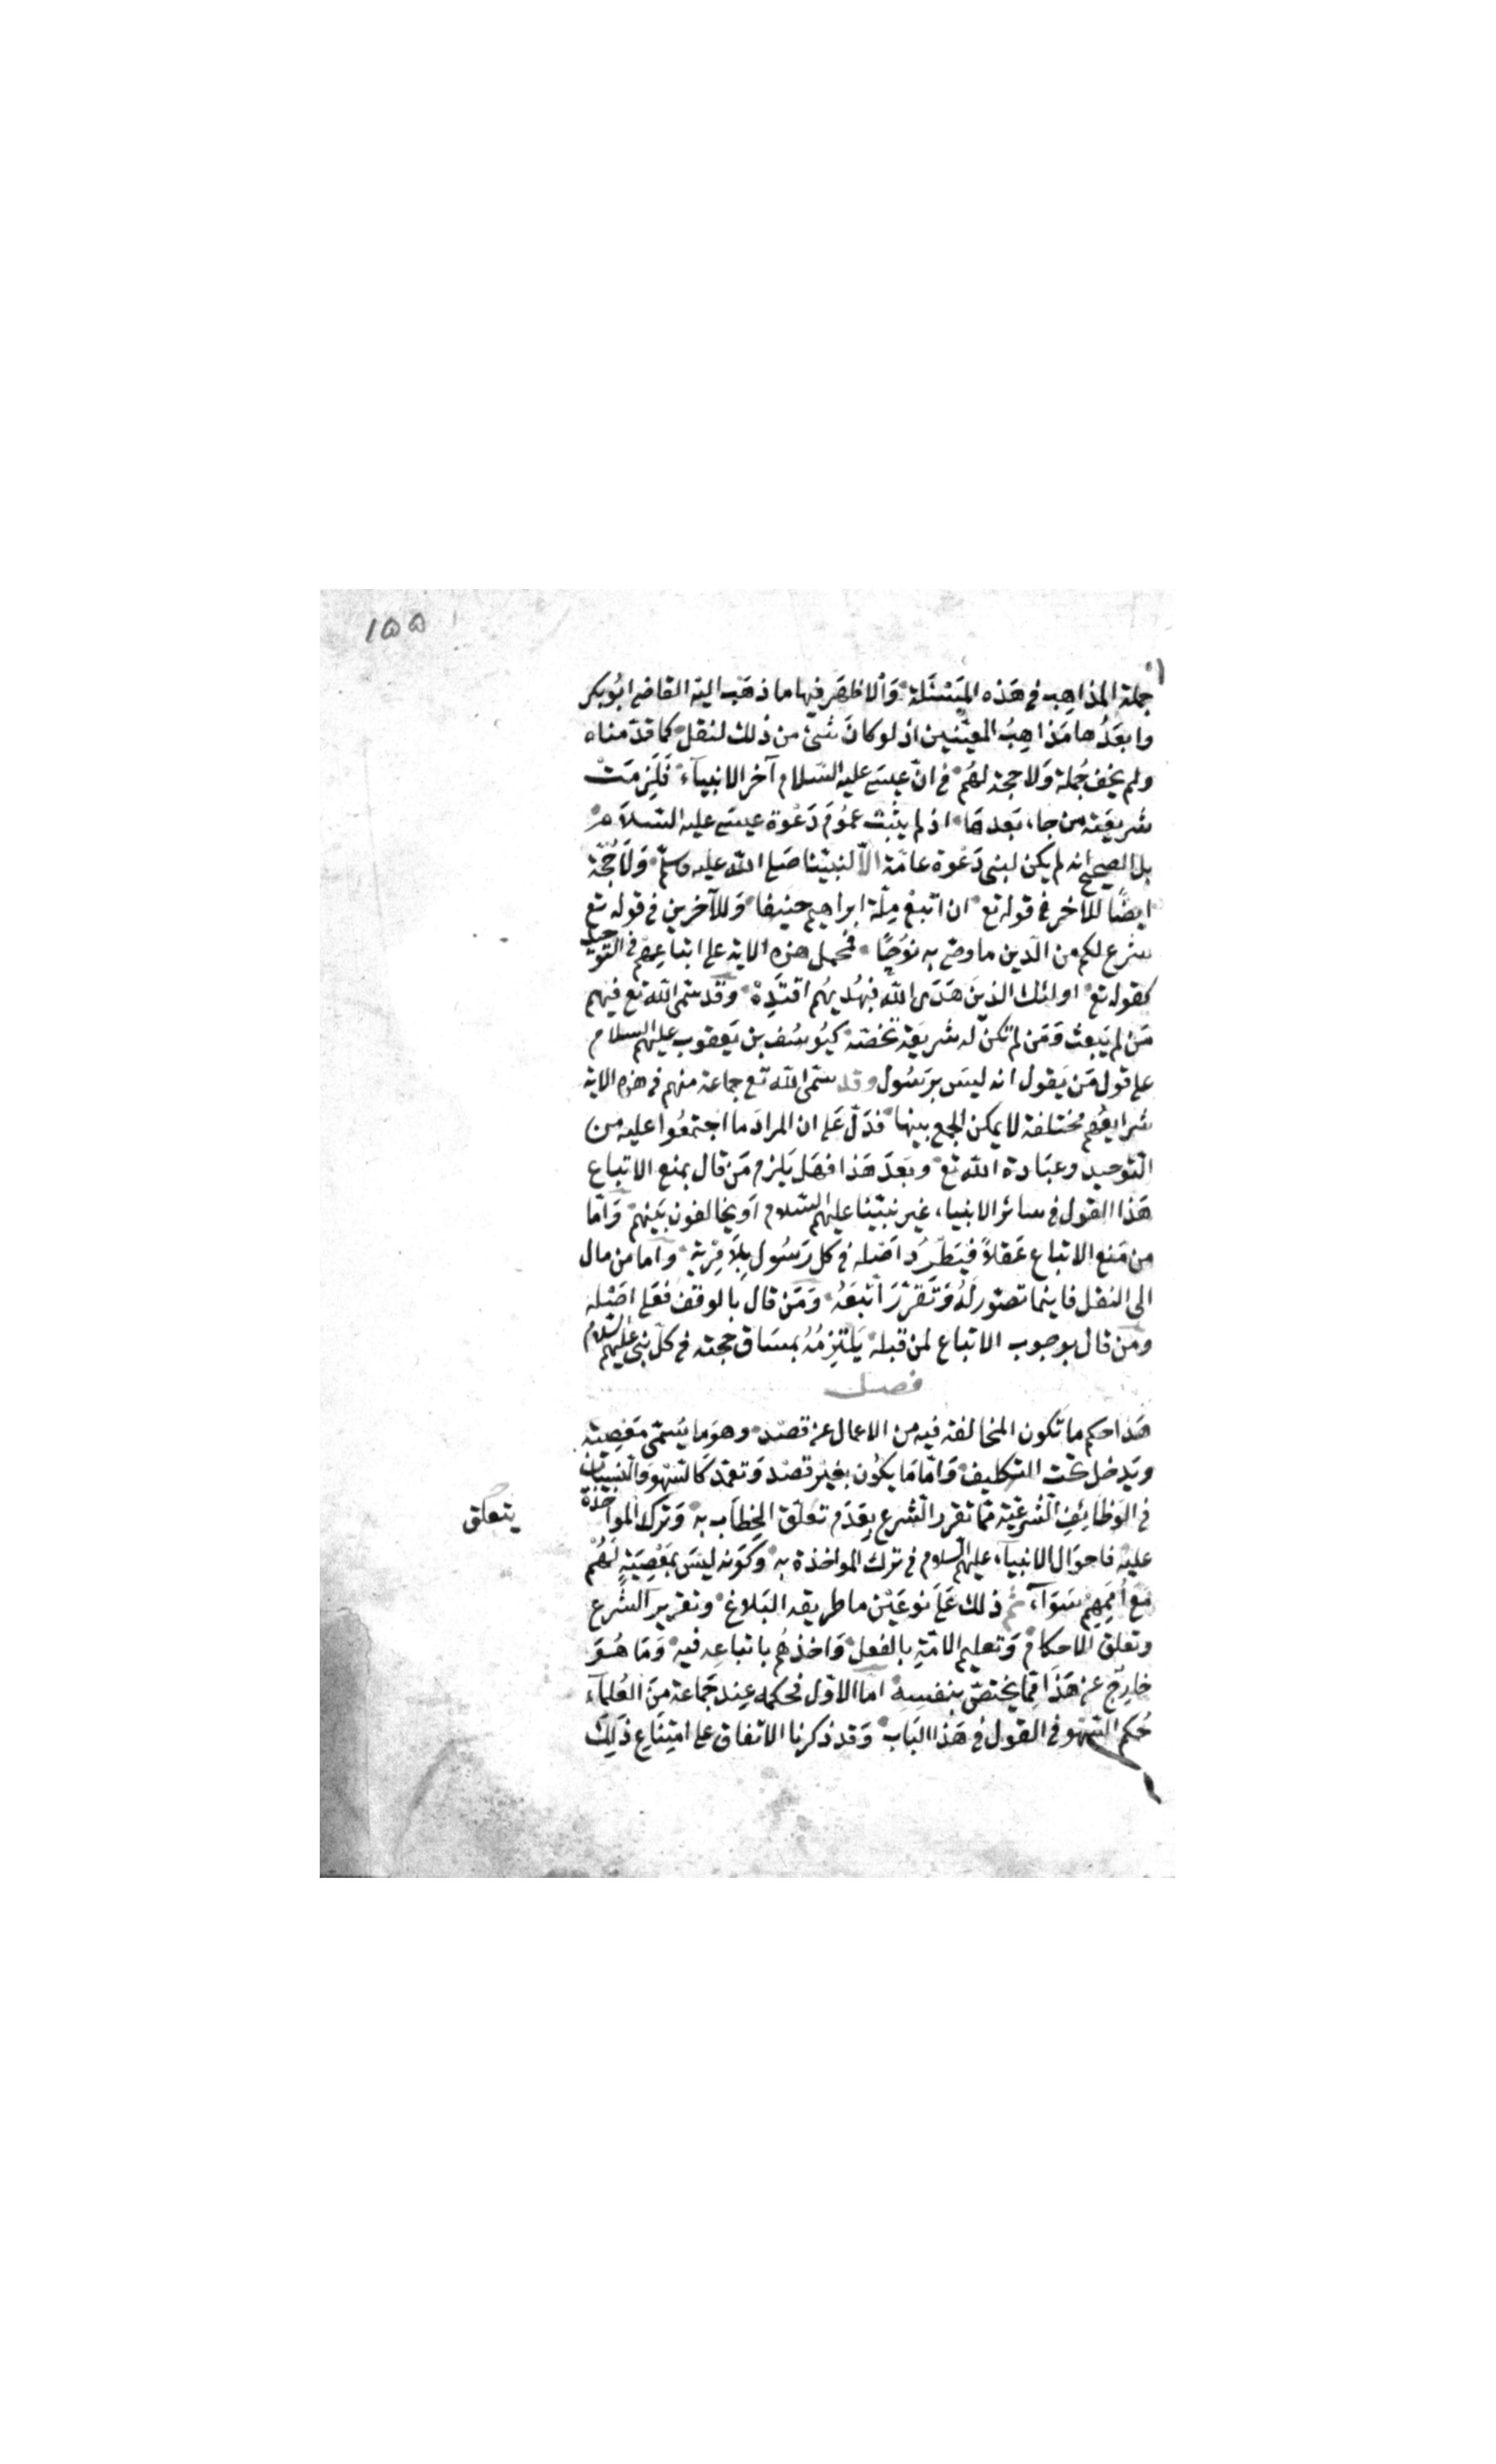 ١٥٥
جملة المذاهب في هذه المسئلة والاظهر فيها ما ذهب اليه القاضي ابو بكر
وابعدها مذاهب المعينين اذ لو كان شئ من ذلك لنقل كما قدمناه
ولم يخف جملة ولا حجة لهم في ان عيسى عليه السلام آخر الانبيآء فلزمت
شريعته من جاء بعدها اذ لم يثبت عموم دعوة عيسى عليه السلام
بل الصحيح انه لم يكن لنبي دعوة عامة الا لنبينا صلى الله عليه وسلم ولا حجة
ايضا للآخر في قوله تع ان اتبع ملة ابراهيم حنيفا وللآخرين في قوله تع
شرع لكم من الدين ما وصى به نوحا فمحمل هذه الاية على اتباعهم في التوحيد
كقوله تع اولئك الذين هدى الله فبهديهم اقتده وقد سمى الله تع فيهم
من لم يبعث ومن لم تكن له شريعة تخصه كيوسف بن يعقوب عليهم السلام
على قول من يقول انه ليس برسول وقد سمى الله تع جماعة منهم في هذه الاية
شرايعهم مختلفة لا يمكن الجمع بينها فدل على ان المراد ما اجتمعوا عليه من
التوحيد وعبادة الله تع وبعد هذا فهل يلزم من قال بمنع الاتباع
هذا القول في سائر الانبياء غير نبينا عليهم السلام او يخالفون بينهم واما
من منع الاتباع عقلا فيطرد اصله في كل رسول بلا مرية واما من مال
الى النقل فاينما تصور له وتقرر اتبعه ومن قال بالوقف فعلى اصله
ومن قال بوجوب الاتباع لمن قبله يلتزمه بمساق حجته في كل نبي عليهم السلام
فصل
هذا حكم ما تكون المخالفة فيه من الاعمال عن قصد وهو ما يسمى معصية
ويدخل تحت التكليف واما ما يكون بغير قصد وتعمد كالسهو والنسيان
في الوظائف الشرعية مما تقرر الشرع بعدم تعلق الخطاب به وترك المواخذة
يتعلق
عليه فاحوال الانبيآء عليهم السلام في ترك المواخذة به وكونه ليس بمعصية لهم
مع اممهم سوآء ثم ذلك على نوعين ما طريقه البلاغ وتقرير الشرع
وتعلق الاحكام وتعليم الامة بالفعل واخذهم باتباعه فيه وما هو
خارج عن هذا مما يختص بنفسه اما الاول فحكمه عند جماعة من العلمآء
حكم السهو في القول في هذا الباب وقد ذكرنا الاتفاق على امتناع ذلك